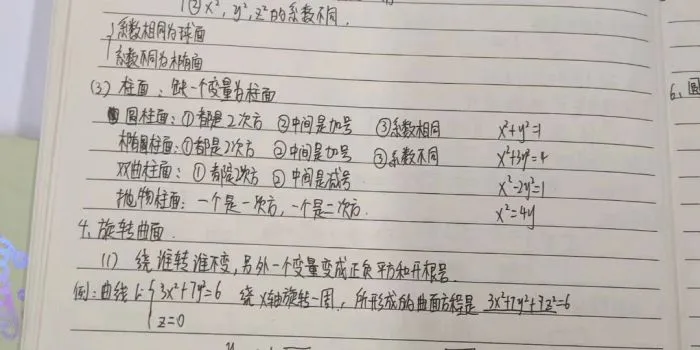 ②x², y², z²的系数不同.
系数相同为球面
系数不同为椭球面
(3) 柱面: 缺一个变量为柱面
圆柱面: ①都是2次方 ②中间是加号 ③系数相同 x²+y²=1
椭圆柱面: ①都是2次方 ②中间是加号 ③系数不同 x²+3y²=4
双曲柱面: ①都是2次方 ②中间是减号 x²-2y²=1
抛物柱面: 一个是一次方, 一个是二次方. x²=4y
4. 旋转曲面.
(1) 绕谁转谁不变, 另外一个变量变成正负平方和开根号.
例: 曲线L: {3x²+7y²=6 绕x轴旋转一周, 所形成的曲面方程是 3x²+7y²+7z²=6
z=0
6. 圆